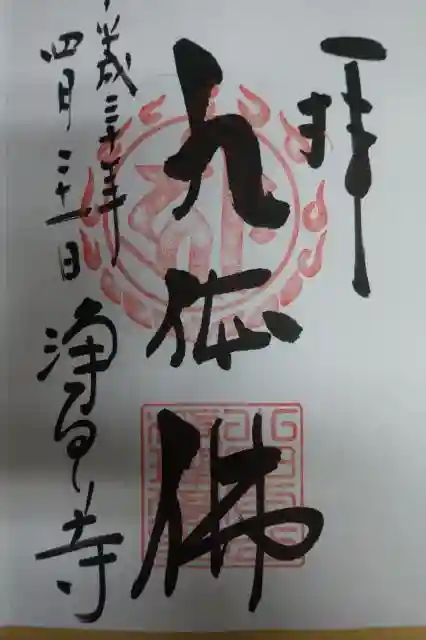 拝
九体佛
平成三十年
四月二十一日
浄瑠璃寺